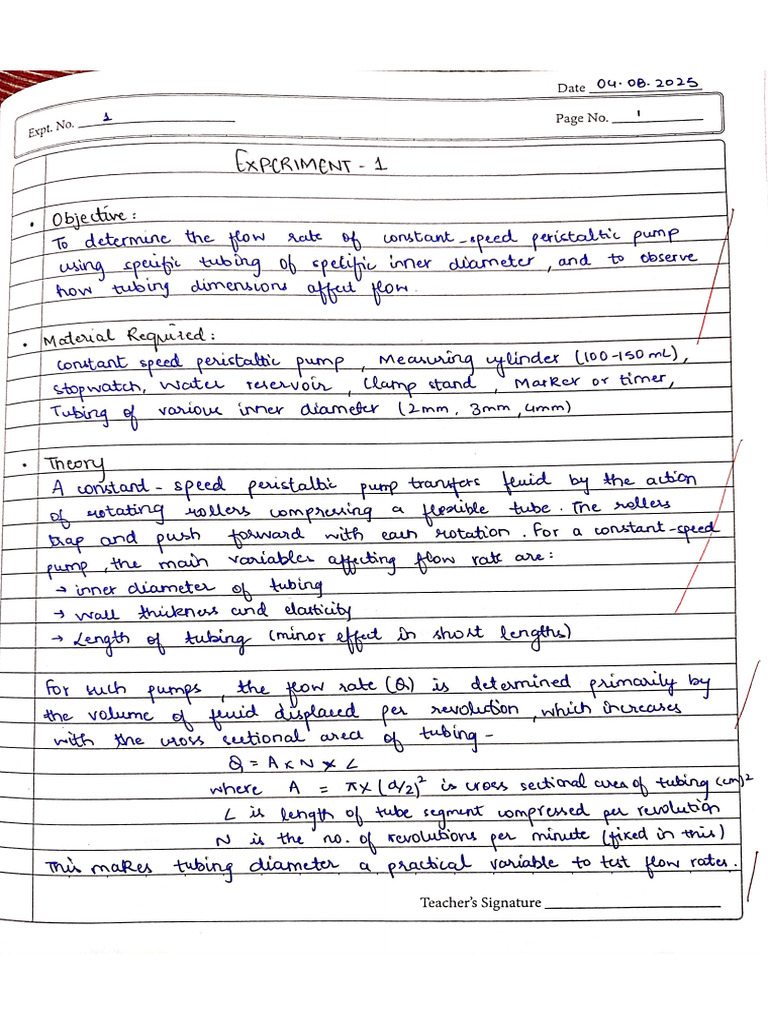 Date 04.08.2025
Expt. No. 1
Page No. 1
EXPERIMENT - 1
• Objective:
To determine the flow rate of constant-speed peristaltic pump
using specific tubing of specific inner diameter, and to observe
how tubing dimensions affect flow.
• Material Required:
Constant speed peristaltic pump, Measuring cylinder (100-150mL),
stopwatch, Water reservoir, Clamp stand, Marker or timer,
Tubing of various inner diameter (2mm, 3mm, 4mm)
• Theory
A constant-speed peristaltic pump transfers fluid by the action
of rotating rollers compressing a flexible tube. The rollers
trap and push forward with each rotation. For a constant-speed
pump, the main variables affecting flow rate are:
→ inner diameter of tubing
→ wall thickness and elasticity
→ Length of tubing (minor effect in short lengths)
For such pumps, the flow rate (Q) is determined primarily by
the volume of fluid displaced per revolution, which increases
with the cross sectional area of tubing -
Q = A x N x L
where A = πx(d/2)² is cross sectional area of tubing (cm)²
L is length of tube segment compressed per revolution
N is the no. of revolutions per minute (fixed in this)
This makes tubing diameter a practical variable to test flow rates.
Teacher's Signature